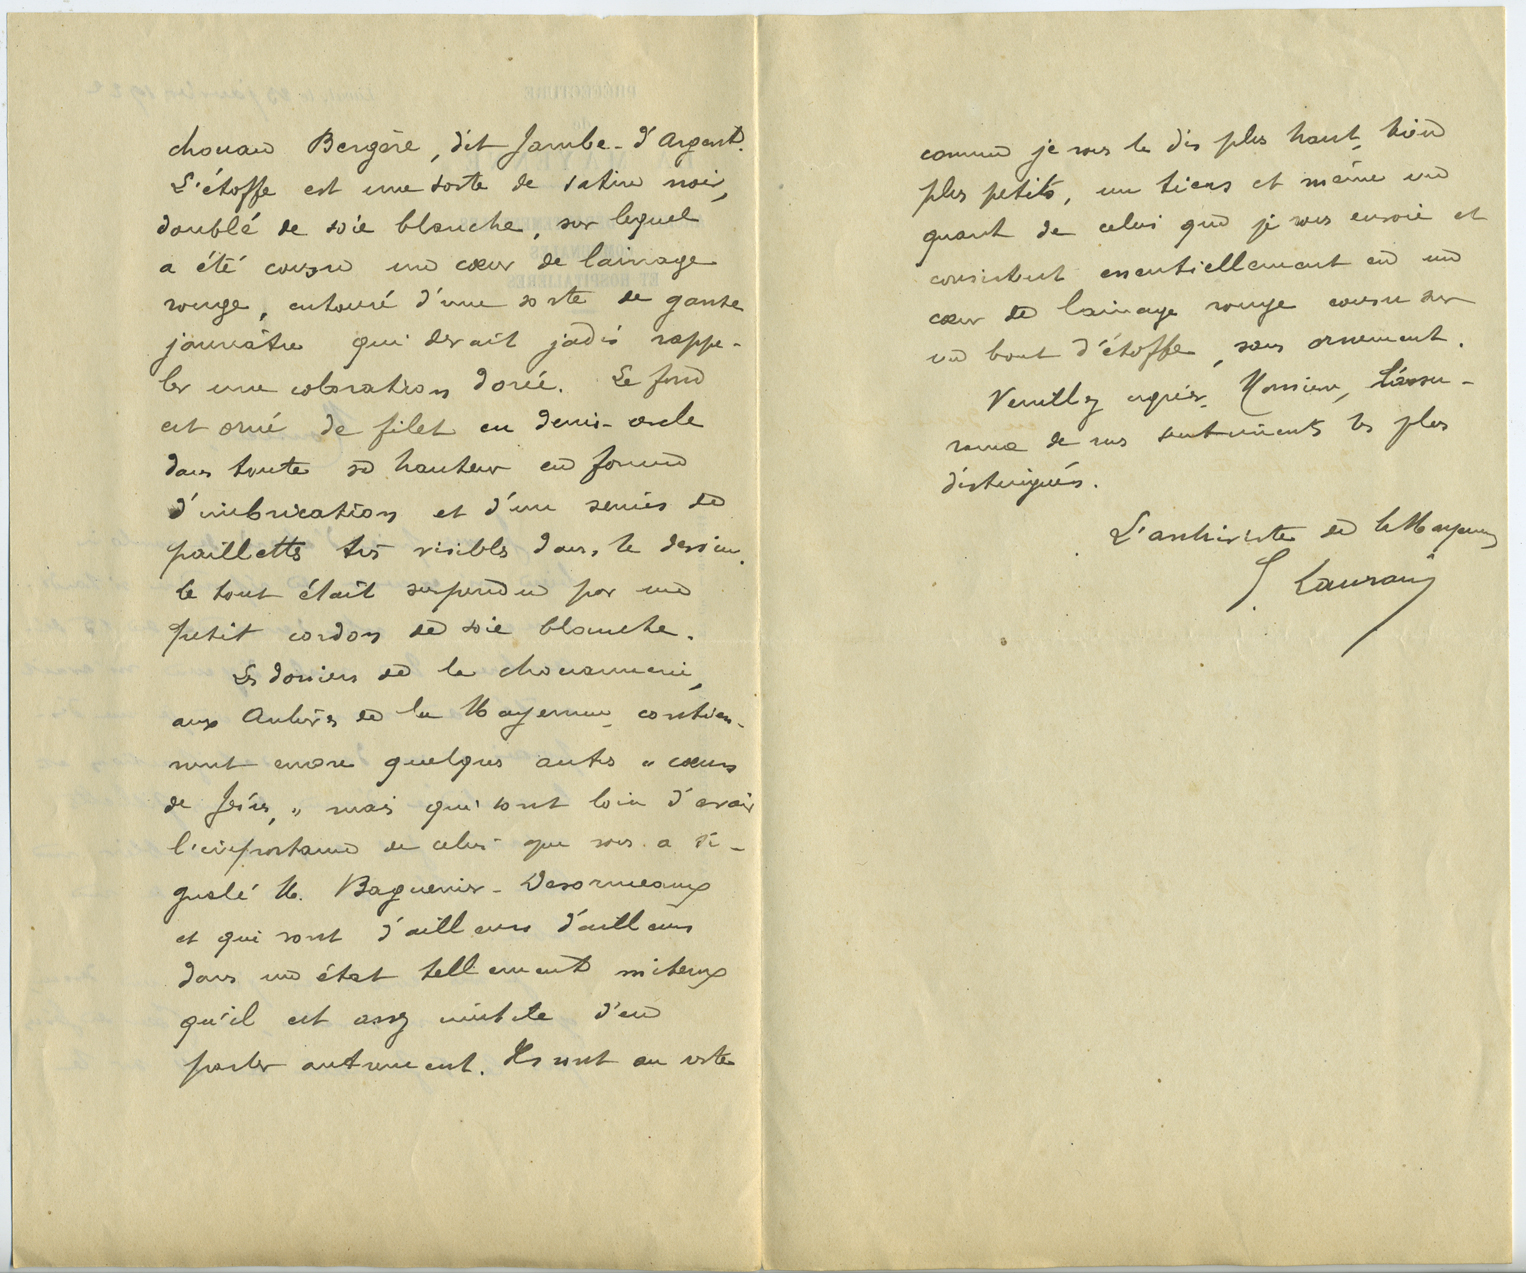 chouan Bergère, dit Jambe-d'Argent.
L'étoffe est une sorte de satin noir,
doublé de soie blanche, sur lequel
a été cousu un cœur de lainage
rouge, entouré d'une sorte de ganse
jaunâtre qui devait jadis rappe-
ler une coloration dorée. Le fond
est orné de filet en demi-cercle
dans toute sa hauteur en forme
d'imbrication et d'une series de
paillettes très visibles dans le dessin.
le tout était suspendu par un
petit cordon de soie blanche.
Les dossiers de la chouannerie,
aux Archives de la Mayenne contien-
nent encore quelques autres "cœurs
de Jésus," mais qui sont loin d'avoir
l'importance de celui que vous a si-
gnalé M. Baguenier-Desormeaux
et qui sont d'ailleurs d'ailleurs
dans un état tellement miteux
qu'il est assez inutile d'en
parler autrement. Ils sont au reste
comme je vous le dis plus haut, bien
plus petits, un tiers et même un
quart de celui que je vous envoie et
consistent essentiellement en un
cœur de lainage rouge cousu sur
un bout d'étoffe, sans ornement.
Veuillez agréer, Monsieur, l'assu-
rance de mes sentiments les plus
distingués.
L'archiviste de la Mayenne
Laurain
PRÉFECTURE
janvier 1922